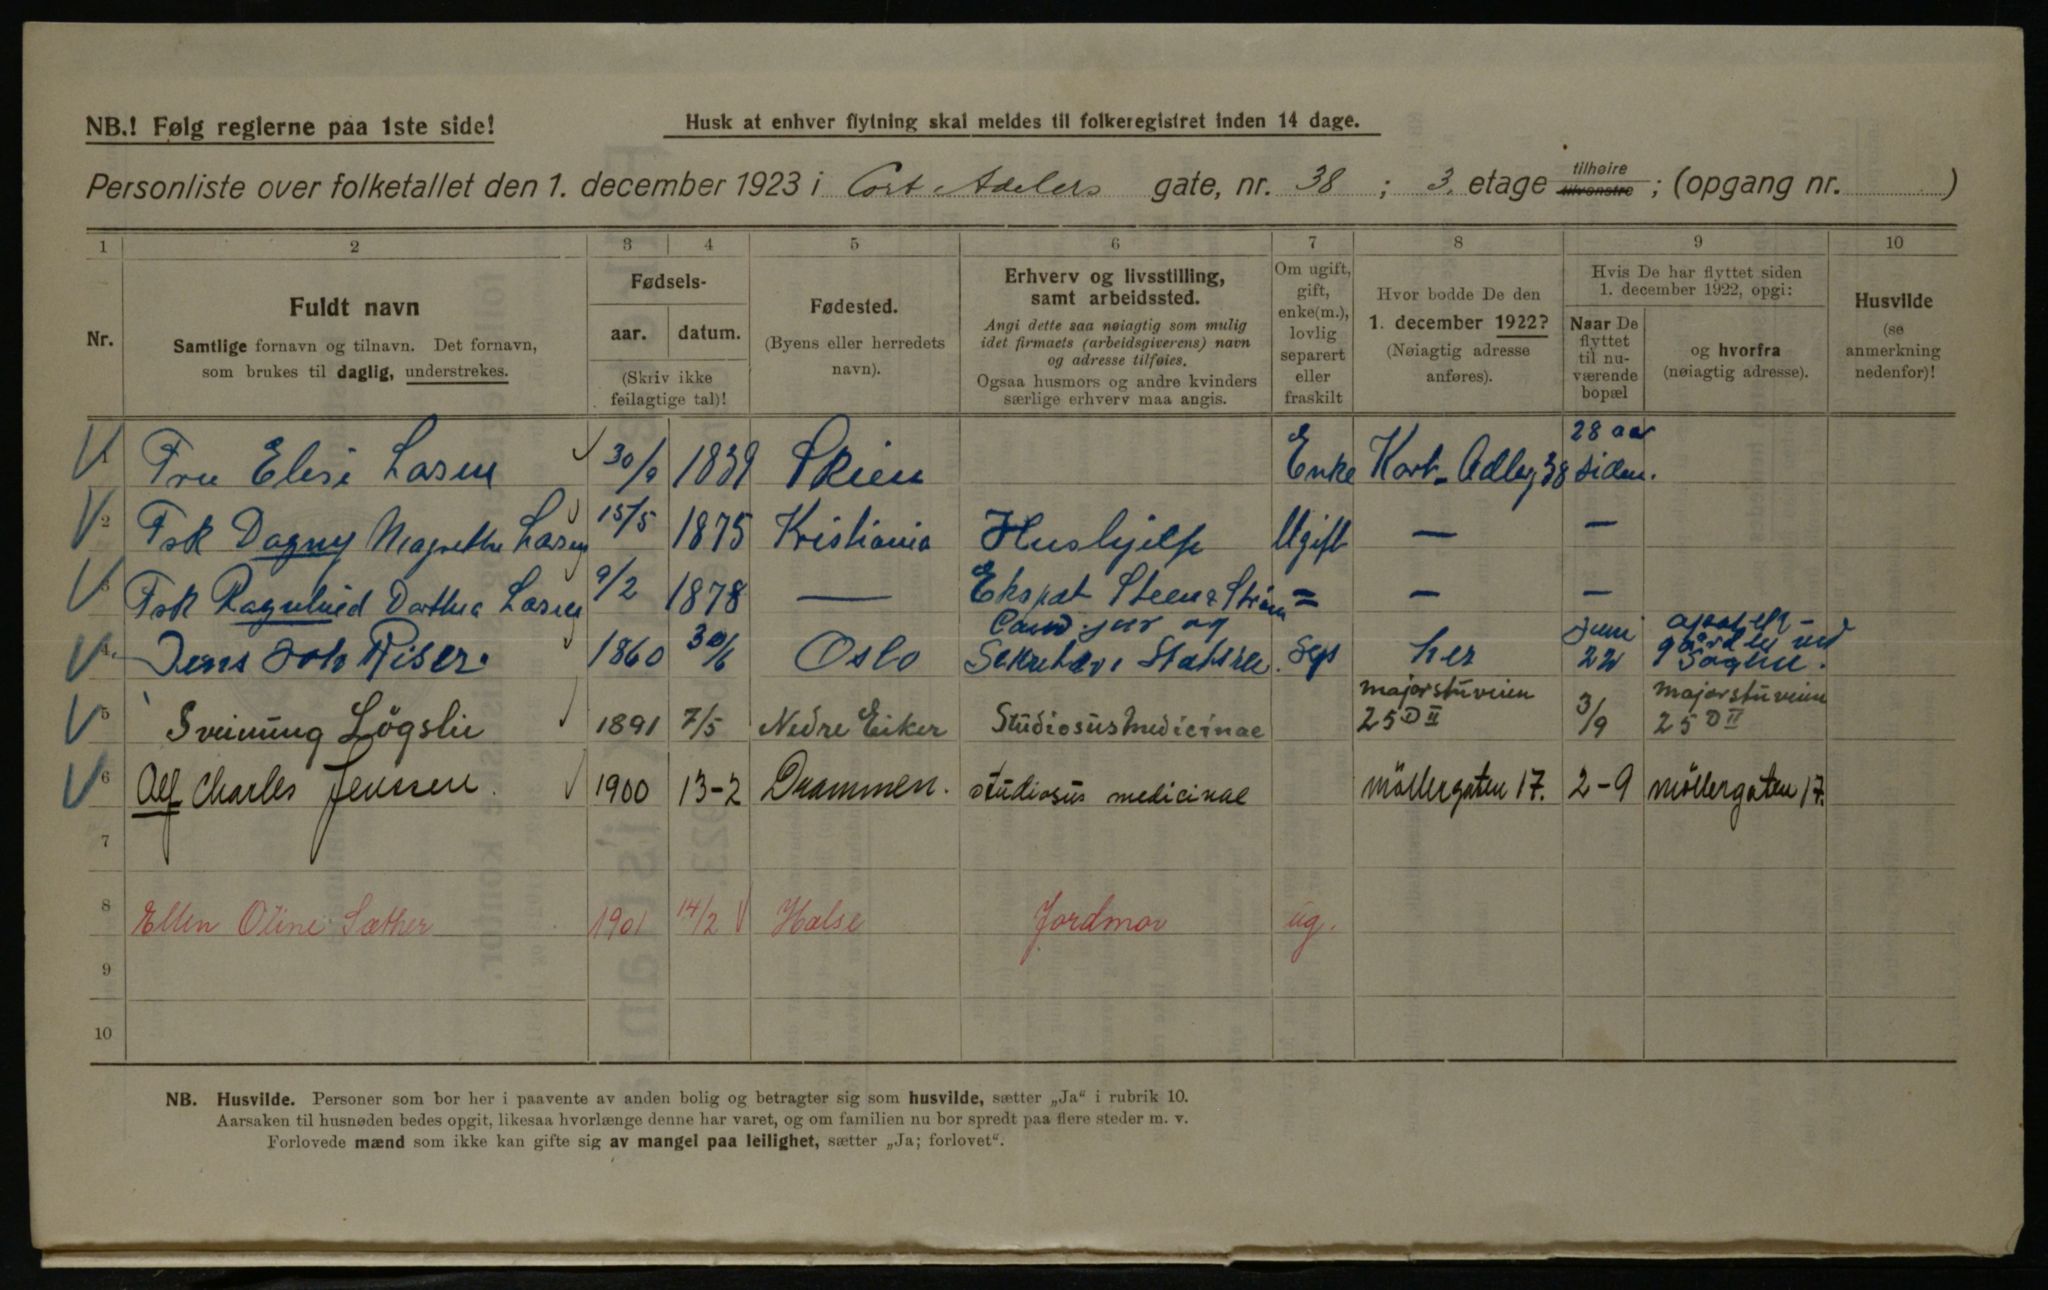 NB.! Følg reglerne paa 1ste side!
Husk at enhver flytning skal meldes til folkeregistret inden 14 dage.
Personliste over folketallet den 1. december 1923 i Cort Adelers gate, nr. 38 ; 3. etage tilhøire tilvenstre ; (opgang nr. )
1 2 3 4 5 6 7 8 9 10
Nr.
Fuldt navn
Samtlige fornavn og tilnavn. Det fornavn,
som brukes til daglig, understrekes.
Fødsels-
aar. datum.
(Skriv ikke
feilagtige tal)!
Fødested.
(Byens eller herredets
navn).
Erhverv og livsstilling,
samt arbeidssted.
Angi dette saa nøiagtig som mulig
idet firmaets (arbeidsgiverens) navn
og adresse tilføies.
Ogsaa husmors og andre kvinders
særlige erhverv maa angis.
Om ugift,
gift,
enke(m.),
lovlig
separert
eller
fraskilt
Hvor bodde De den
1. december 1922?
(Nøiagtig adresse
anføres).
Hvis De har flyttet siden
1. december 1922, opgi:
Naar De
flyttet
til nu-
værende
bopæl
og hvorfra
(nøiagtig adresse).
Husvilde
(se
anmerkning
nedenfor)!
1 Fru Elise Lasen 30/9 1839 Skien Enke Kort-Adlerg 38 28 aar siden.
2 Frk Dagny Magrethe Lasen 15/5 1875 Kristiania Hushjelp Ugift — —
3 Frk Ragnhild Dorthea Lasen 9/2 1878 — Ekspet Steen & Strøm = — —
4. Jens Joh Riser. 1860 30/6 Oslo Cand jur og Sekretær i Sep her Juni 22
5 Sveinung Lögslie 1891 7/5 Nedre Eiker Studiosus Medicinae majorstuveien 25 D II 3/9 majorstuveien 25 D II
6 Alf Charles Jenssen. 1900 13-2 Drammen. studiosus medicinae Möllergaten 17. 2-9 Möllergaten 17.
7
8 Ellen Oline Sæther 1901 14/2 Halse Jordmor ug.
9
10
NB. Husvilde. Personer som bor her i paavente av anden bolig og betragter sig som husvilde, sætter „Ja“ i rubrik 10.
Aarsaken til husnøden bedes opgit, likesaa hvorlænge denne har varet, og om familien nu bor spredt paa flere steder m. v.
Forlovede mænd som ikke kan gifte sig av mangel paa leilighet, sætter „Ja; forlovet“.